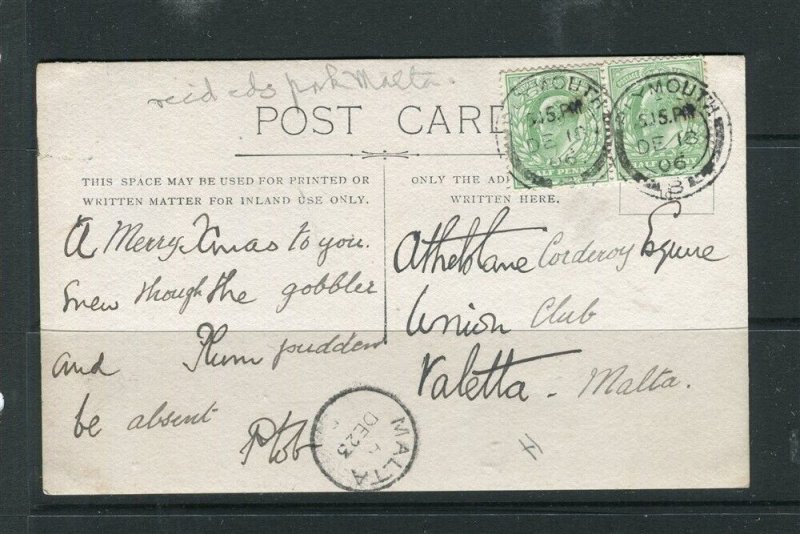 POST CARD
THIS SPACE MAY BE USED FOR PRINTED OR
WRITTEN MATTER FOR INLAND USE ONLY.
ONLY THE AD
WRITTEN HERE.
YMOUTH
5.15.PM
DE 18
06
YMOUTH
5.15.PM
DE 18
06
HALF PENNY
A Merry Xmas to you.
though the gobbler
and Plum pudden
be absent
Athelstane Corderoy Esquire
Union Club
Valetta - Malta.
MALTA
DE 23